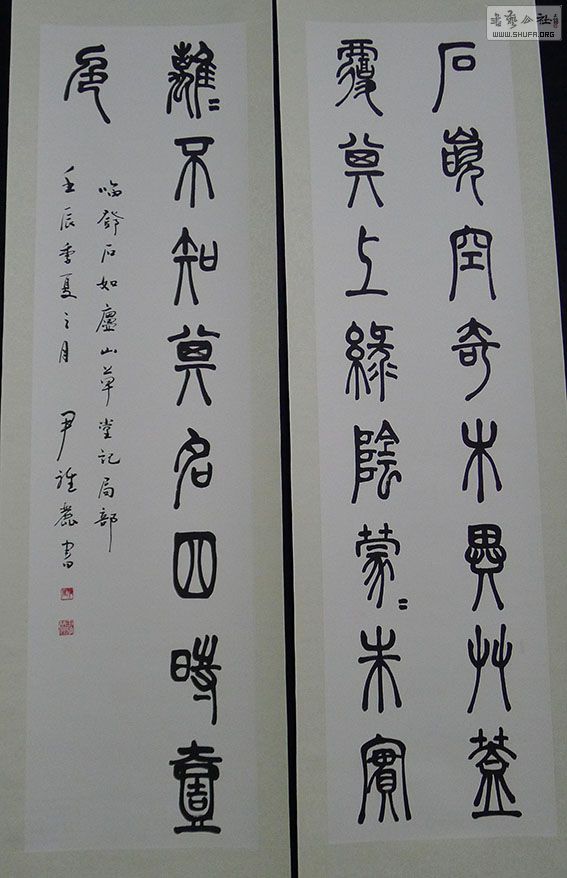 書藝公社
WWW.SHUFA.ORG
石嵌空奇木異艸蓋
覆其上綠陰蒙〻朱實
離〻不知其名四時壹
色
臨鄧石如廬山草堂記局部
壬辰季夏之月 尹 書